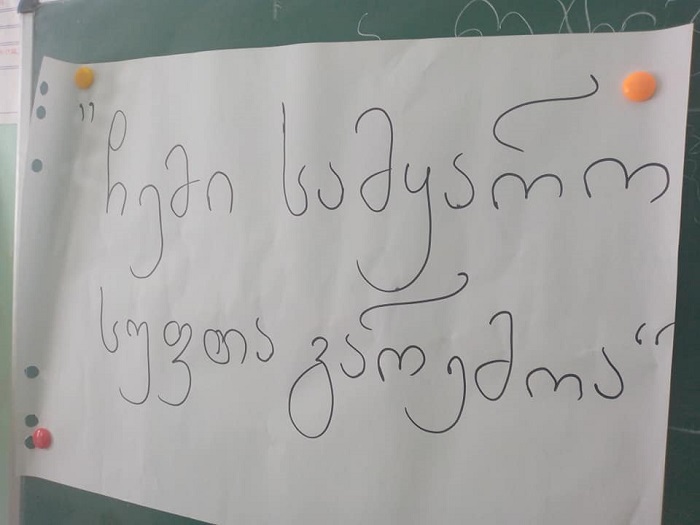 "ჩემი სამყარო
სუფთა გარემოა"